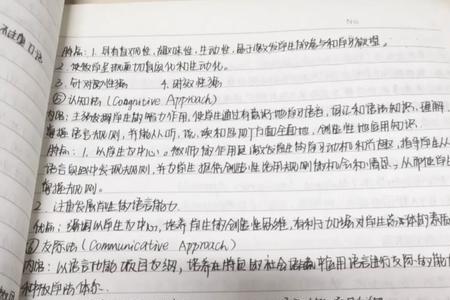 No
特点：1. 具有针对性，趣味性，生动性，易于激发学生的参与和学习欲望。
2. 使教学呈现面切直观化和生动化。
3. 针对性强 4. 时效性强
⑤ 认知法 (Congnitive Approach)
内容：主张发挥学生的智力作用，使学生通过有意识地学习语音，词汇和语法知识，理解
掌握语言规则，并能从听，说，读和写四个方面全面地，创造性地运用知识
特点：1. 以学生为中心。教师的作用是激发学生的学习动机和兴趣，指导学生从
语言 中发现规则，并为学生提供创造性使用规则的机会和情景，从而使学生
掌握规则。
2. 注重发展学生的语言能力
优点：强调以学生为中心，培养学生的创造性思维，有利于加强对学生 的
⑥ 交际法 (Communicative Approach)
内容：以语言功能项目为纲，培养在特定的社会语境中运用语言进行交际的能
种教学法体系。